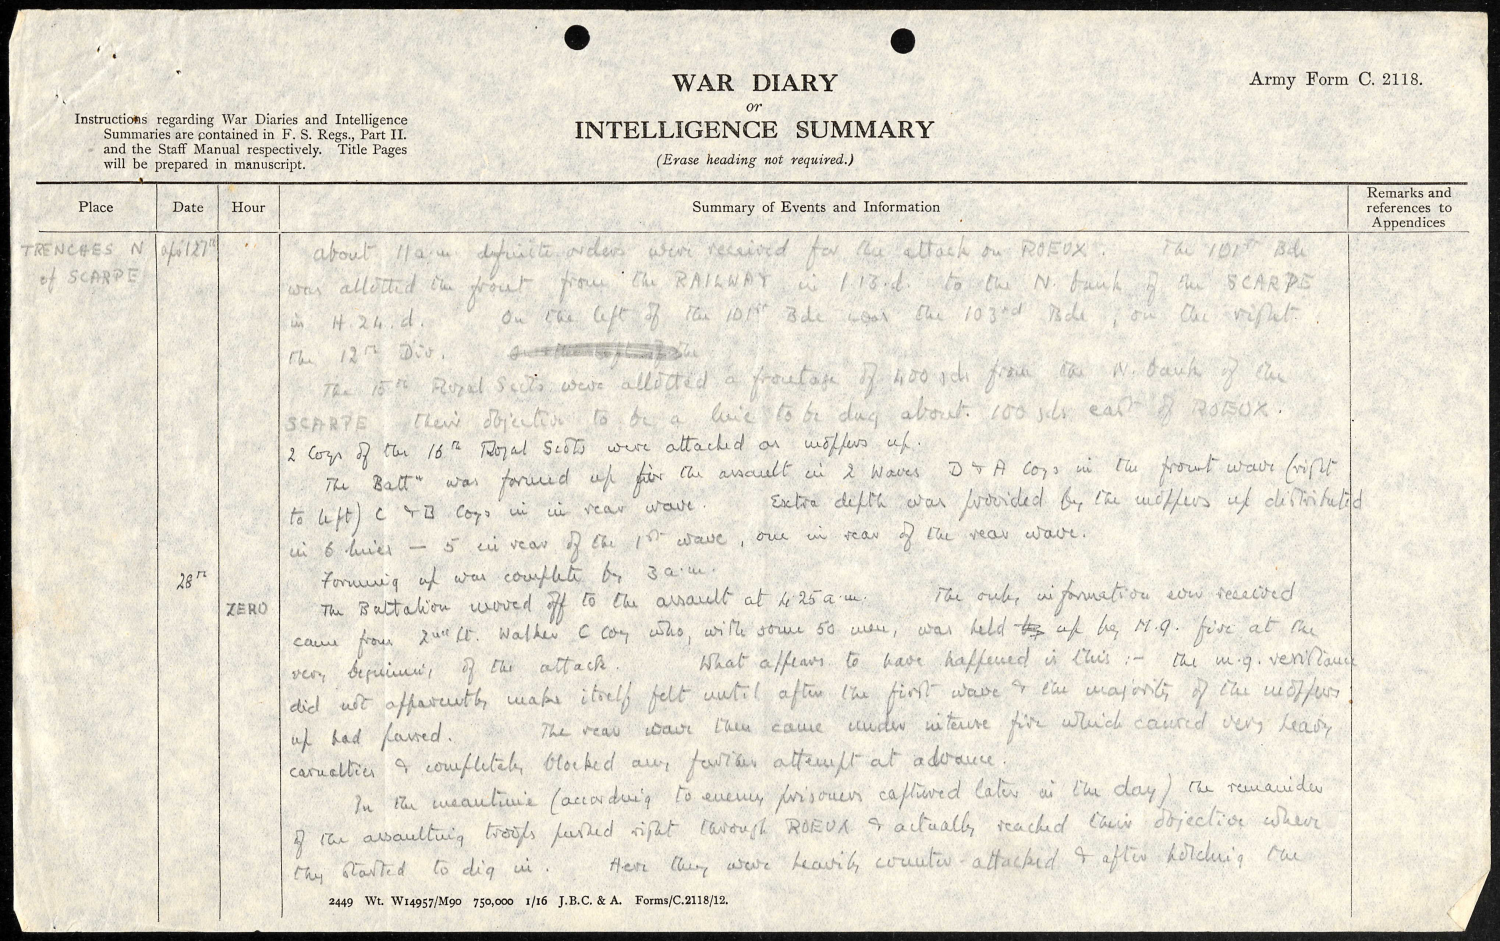 WAR DIARY
or
INTELLIGENCE SUMMARY
(Erase heading not required.)
Army Form C. 2118.
Instructions regarding War Diaries and Intelligence
Summaries are contained in F. S. Regs., Part II.
and the Staff Manual respectively. Title Pages
will be prepared in manuscript.
Place Date Hour Summary of Events and Information Remarks and references to Appendices
TRENCHES N April 27th about 11 a.m. definite orders were received for the attack on ROEUX. The 101st Bde
of SCARPE was allotted the front from the RAILWAY in I.13.d. to the N. bank of the SCARPE
in H.24.d. On the left of the 101st Bde was the 103rd Bde, on the right
the 12th Div.
The 15th Royal Scots were allotted a frontage of 400 yds from the N. bank of the
SCARPE their objective to be a line to be dug about 100 yds east of ROEUX.
2 Coys of the 16th Royal Scots were attached as moppers up.
The Battn was formed up for the assault in 2 waves D & A Coys in the front wave (right
to left) C & B Coys in in rear wave. Extra depth was provided by the moppers up distributed
in 6 lines — 5 in rear of the 1st wave, one in rear of the rear wave.
28th Forming up was complete by 3 a.m.
ZERO The Battalion moved off to the assault at 4.25 a.m. The only information ever received
came from 2nd Lt. Walker C Coy who, with some 50 men, was held up by M.G. fire at the
very beginning of the attack. What appears to have happened is this :- the m.g. resistance
did not apparently make itself felt until after the first wave & the majority of the moppers
up had passed. The rear wave then came under intense fire which caused very heavy
casualties & completely blocked any further attempt at advance.
In the meantime (according to enemy prisoners captured later in the day) the remainder
of the assaulting troops pushed right through ROEUX & actually reached their objective where
they started to dig in. Here they were heavily counter-attacked & after holding the
2449 Wt. W14957/M90 750,000 1/16 J.B.C. & A. Forms/C.2118/12.